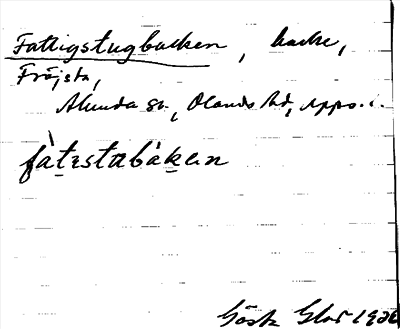 Fattigstugbacken, backe,
Fröjsta,
Alunda sn, Olands hd, Upps. l.
fàtɪstubákɛn
Gösta Glas 1926